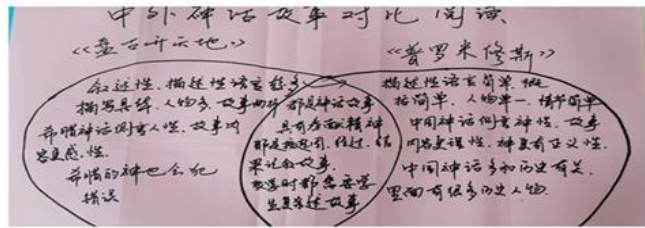 中外神话故事对比阅读
《盘古开天地》
《普罗米修斯》
叙述性、描述性语言较多
描写具体、人物多、故事
希腊神话侧重人性、故事内
容更感性
希腊的神也会犯
错误
都是神话故事
具有 精神
都是按起因、经过、结
果讲的故事
都需要学
生复述故事
描述性语言简单、概
括简单、人物单一、情节简单
中国神话侧重神性、故事
内容更理性、神更有正义性.
中国神话多和历史有关、
里面有很多历史人物.